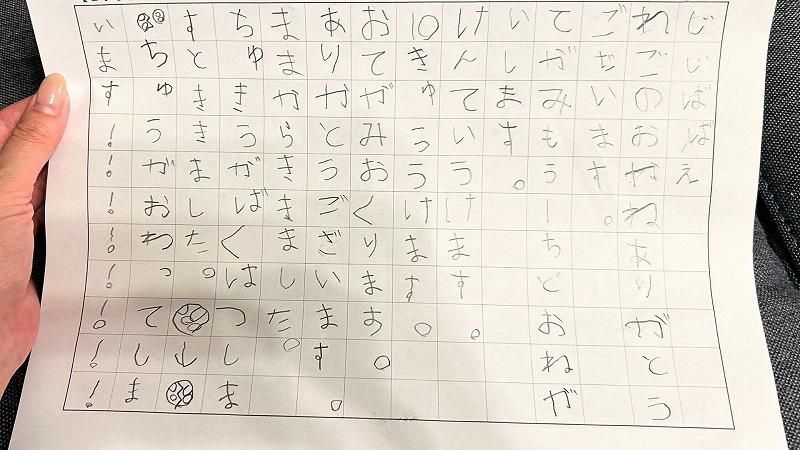 じじばばえ
れごのおかねありがとう
ございます。
てがみもうーちどおねが
いします。
けんていうけます。
10きゅううけます。
おてがみおくります。
ありがとうございます。
ままからききました。
ちゅきうがばくはつしま
すとききました。
ちゅうがおわってしま
います！！！！！！！！